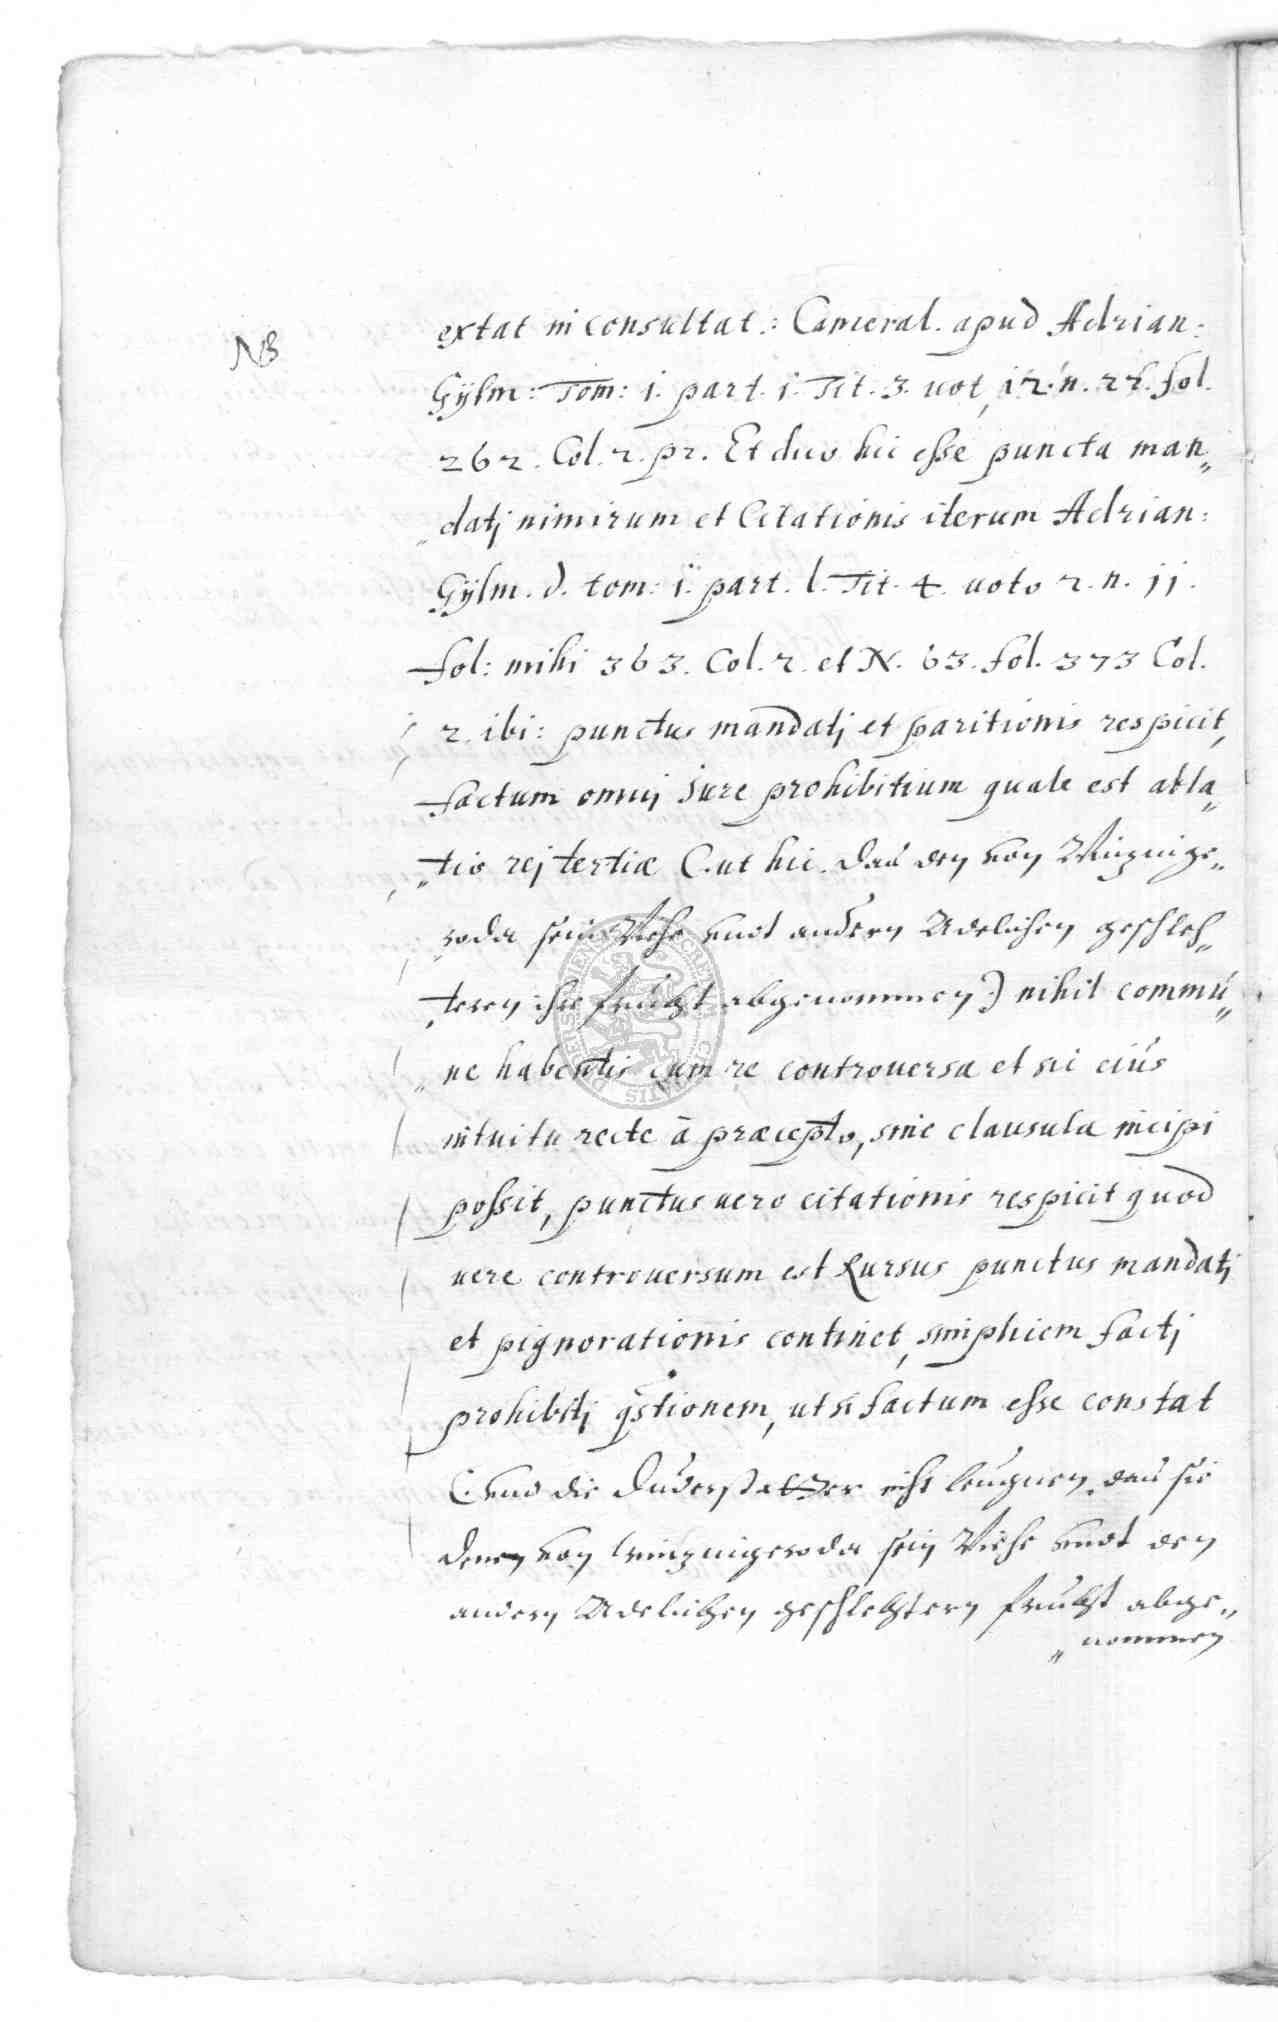 NB
extat in consultat.: Cameral. apud Adrian:
Gÿlm: Tom: i. part. i. Tit. 3. uot, 12. n. 22. fol.
262. Col. 2. pr. Et duo hic esse puncta man„
„datj nimirum et Citationis iterum Adrian:
Gÿlm. d. tom: i. part. 1. Tit. 4. uoto 2. n. 11.
fol: mihi 363. Col. 2. et N. 63. fol. 373 Col.
2. ibi: punctus mandatj et paritionis respicit,
factum omnj Jure prohibitium quale est abla„
„tio rej tertiæ (. ut hic. das den von Winzinge„
„roda sein Viehe undt andern Adelichen geschlech„
„teren ihre frucht abgenommen) nihil commú„
„ne habentis cum re controuersa et sic eiús
intuitu recte à præcepto, sine clausula incipi
possit, punctus uero citationis respicit quod
uere controuersum est Rursus punctus mandatj
et pignorationis continet, simplicem factj
prohibitj qstionem, ut si factum esse constat
(. und die Duderstatter nicht leugnen, das sie
denen von Winzingeroda sein Viehe undt den
andern Adelichen geschlechtern frucht abge„
„nommen